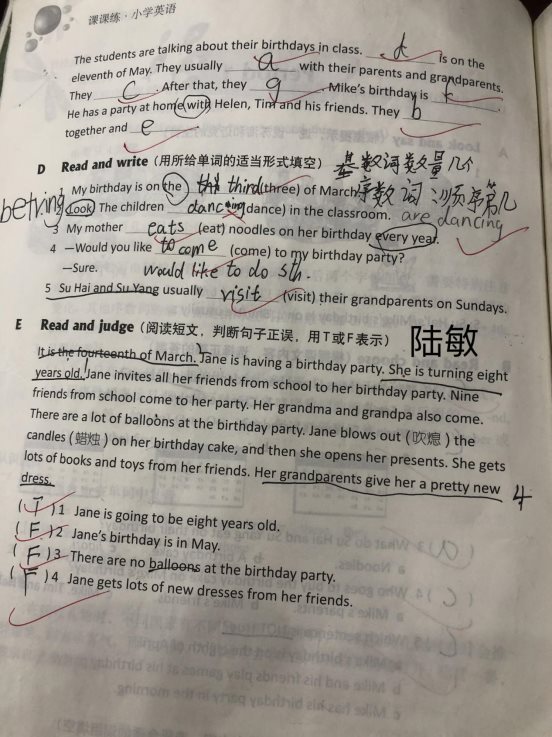 课课练·小学英语
The students are talking about their birthdays in class. d is on the
eleventh of May. They usually a with their parents and grandparents.
They c. After that, they g. Mike's birthday is f.
He has a party at home with Helen, Tim and his friends. They b
together and e
D Read and write (用所给单词的适当形式填空) 基数词数量几个
1 My birthday is on the third (three) of March. 序数词 顺序第几
be+ving 2 Look! The children dancing (dance) in the classroom. are dancing
3 My mother eats (eat) noodles on her birthday every year.
4 —Would you like to come (come) to my birthday party?
—Sure. would like to do sth.
5 Su Hai and Su Yang usually visit (visit) their grandparents on Sundays.
E Read and judge (阅读短文，判断句子正误，用T或F表示) 陆敏
It is the fourteenth of March. Jane is having a birthday party. She is turning eight
years old. Jane invites all her friends from school to her birthday party. Nine
friends from school come to her party. Her grandma and grandpa also come.
There are a lot of balloons at the birthday party. Jane blows out (吹熄) the
candles (蜡烛) on her birthday cake, and then she opens her presents. She gets
lots of books and toys from her friends. Her grandparents give her a pretty new
dress. 4
(T) 1 Jane is going to be eight years old.
(F) 2 Jane's birthday is in May.
(F) 3 There are no balloons at the birthday party.
(F) 4 Jane gets lots of new dresses from her friends.